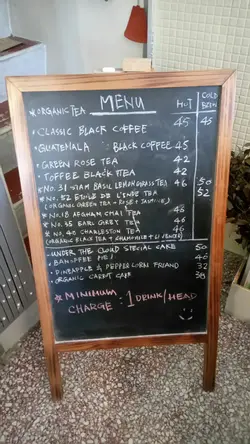 *ORGANIC TEA MENU HOT COLD BREW
CLASSIC BLACK COFFEE 45 45
GUATEMALA BLACK COFFEE 45
GREEN ROSE TEA 42
TOFFEE BLACK TEA 42
*NO. 31 SIAM BASIL LEMONGRASS TEA 46 50
*NO. 52 ETOILE DE L'INDE TEA 52
(ORGANIC GREEN TEA + ROSE + JASMINE)
*NO. 18 AFGHAN CHAI TEA 46
*NO. 35 EARL GREY TEA 46
*NO. 40 CHARLESTON TEA 46
(ORGANIC BLACK TEA + CHAMOMILE + LAVENDER)
UNDER THE CLOUD SPECIAL CAKE 50
BANOFFEE PIE 46
PINEAPPLE & PEPPERCORN FRIAND 32
ORGANIC CARROT CAKE 38
*MINIMUM
CHARGE : 1 DRINK/HEAD